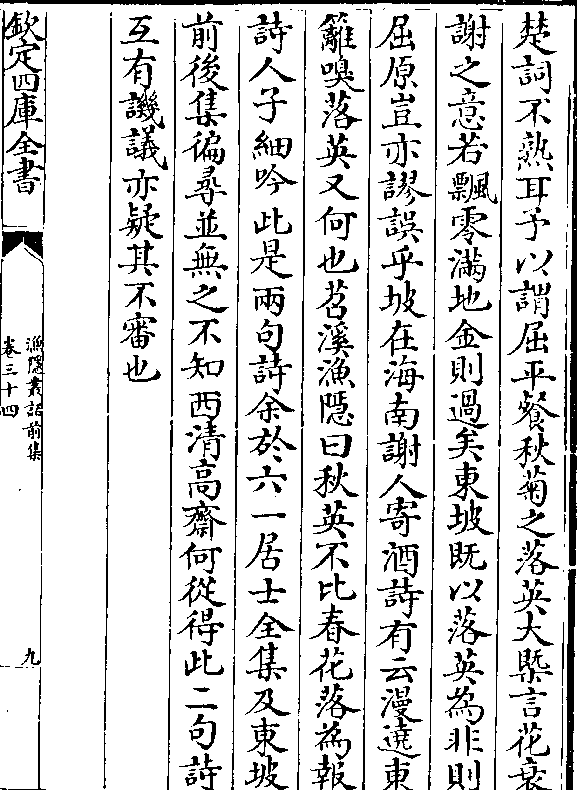 楚詞不熟耳予以謂屈平餐秋菊之落英大槩言花衰
謝之意若飄零滿地金則過矣東坡既以落英為非則
屈原豈亦謬誤乎坡在海南謝人寄酒詩有云漫遶東
籬嗅落英又何也苕溪漁隱曰秋英不比春花落為報
詩人子細吟此是兩句詩余於六一居士全集及東坡
前後集徧尋並無之不知西清高齋何從得此二句詩
互有譏議亦疑其不審也
欽定四庫全書
漁隱叢話前集
卷三十四
九